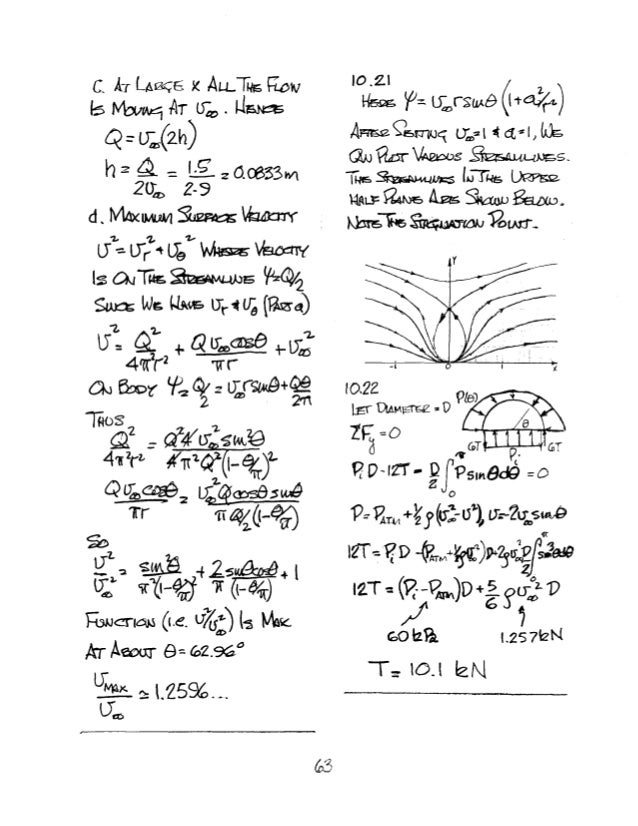 C. AT LARGE X ALL THE FLOW
IS MOVING AT U∞. HENCE
Q=U∞(2h)
h = Q/2U∞ = 1.5/2·9 = 0.0833m
d. MAXIMUM SURFACE VELOCITY
U²=Ur²+Uθ² WHERE VELOCITY
IS ON THE STREAMLINE Ψ=Q/2
SINCE WE HAVE Ur & Uθ (PART a)
U² = Q²/4π²r² + QU∞cosθ/πr + U∞²
ON BODY Ψ = Q/2 = U∞rsinθ+Qθ/2π
THUS
Q²/4π²r² = Q²4U∞²sin²θ/4π²Q²(1-θ/π)²
QU∞cosθ/πr = U∞²Qcosθsinθ/πQ/2(1-θ/π)
SO
U²/U∞² = sin²θ/π²(1-θ/π)² + 2sinθcosθ/π(1-θ/π) + 1
FUNCTION (i.e. U²/U∞²) IS MAX
AT ABOUT θ=62.96°
UMAX/U∞ ≃ 1.2596...
10.21
HERE Ψ=U∞rsinθ(1+a²/r²)
AFTER SETTING U∞=1 & a=1, WE
CAN PLOT VARIOUS STREAMLINES.
THE STREAMLINES IN THE UPPER
HALF PLANE ARE SHOWN BELOW.
NOTE THE STAGNATION POINT.
Y
-1 0 1 x
10.22
LET DIAMETER = D
P(θ)
θ
ΣFy=0
6T Pi 6T
PiD-12T-D/2∫₀^π Psinθdθ=0
P=PATM+½ρ(U∞²-U²), U=2U∞sinθ
12T=PiD-(PATM+½ρU∞²)D+2ρU∞²D/2∫₀^π sin³θdθ
12T=(Pi-PATM)D+5/6 ρU∞²D
60kPa 1.257kN
T= 10.1 kN
63